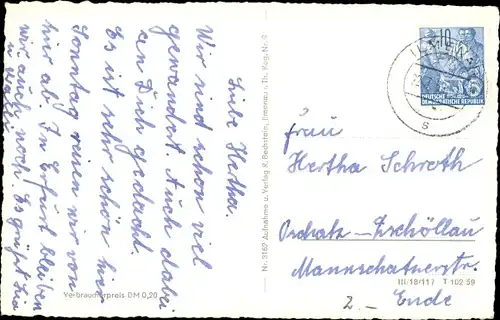 Liebe Hertha.
Wir sind schon viel
gewandert. Auch dabei
an Dich gedacht.
Es ist sehr schön hier
Sonntag reisen wir von
hier ab. In Erfurt bleiben
wir auch noch. Es grüßt Lia
u. Walli
Verbraucherpreis DM 0,20
Nr. 3162 Aufnahme u. Verlag R. Bechstein, Ilmenau i. Th. Reg.-Nr. 9
ILMENAU
10
DEUTSCHE
DEMOKRATISCHE REPUBLIK
s
Frau
Hertha Schreth
Oschatz-Zschöllau
Mannschatzerstr.
III/18/117 T 102 59
2.- Ende